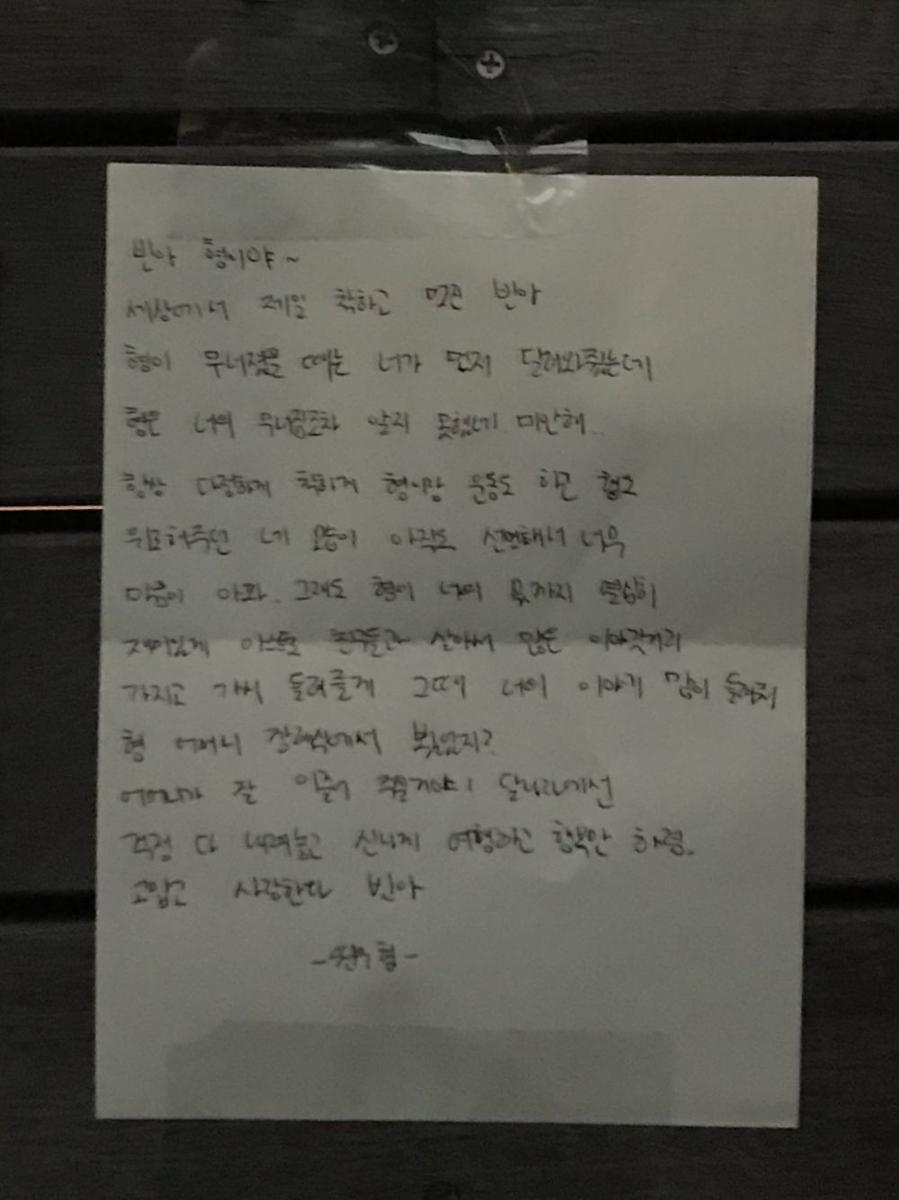 빈아 형이야~
세상에서 제일 착하고 멋진 빈아
형이 무너졌을 때는 너가 먼저 달려와줬는데
형은 너의 무너짐조차 알지 못했네 미안해..
항상 다정하게 착하게 형이랑 운동도 하곤 했고
위로해주던 네 모습이 아직도 선명해서 너무
마음이 아파. 그래도 형이 너의 몫까지 열심히
재미있게 아스트로 친구들과 살아서 많은 이야깃거리
가지고 가서 들려줄게 그때 너의 이야기 많이 들려줘
형 어머니 장례식에서 뵈었지?
어머니가 잘 이끌어 주실거야! 달나라에선
걱정 다 내려놓고 신나게 여행하고 행복만 하렴.
고맙고 사랑한다 빈아
- 형 -